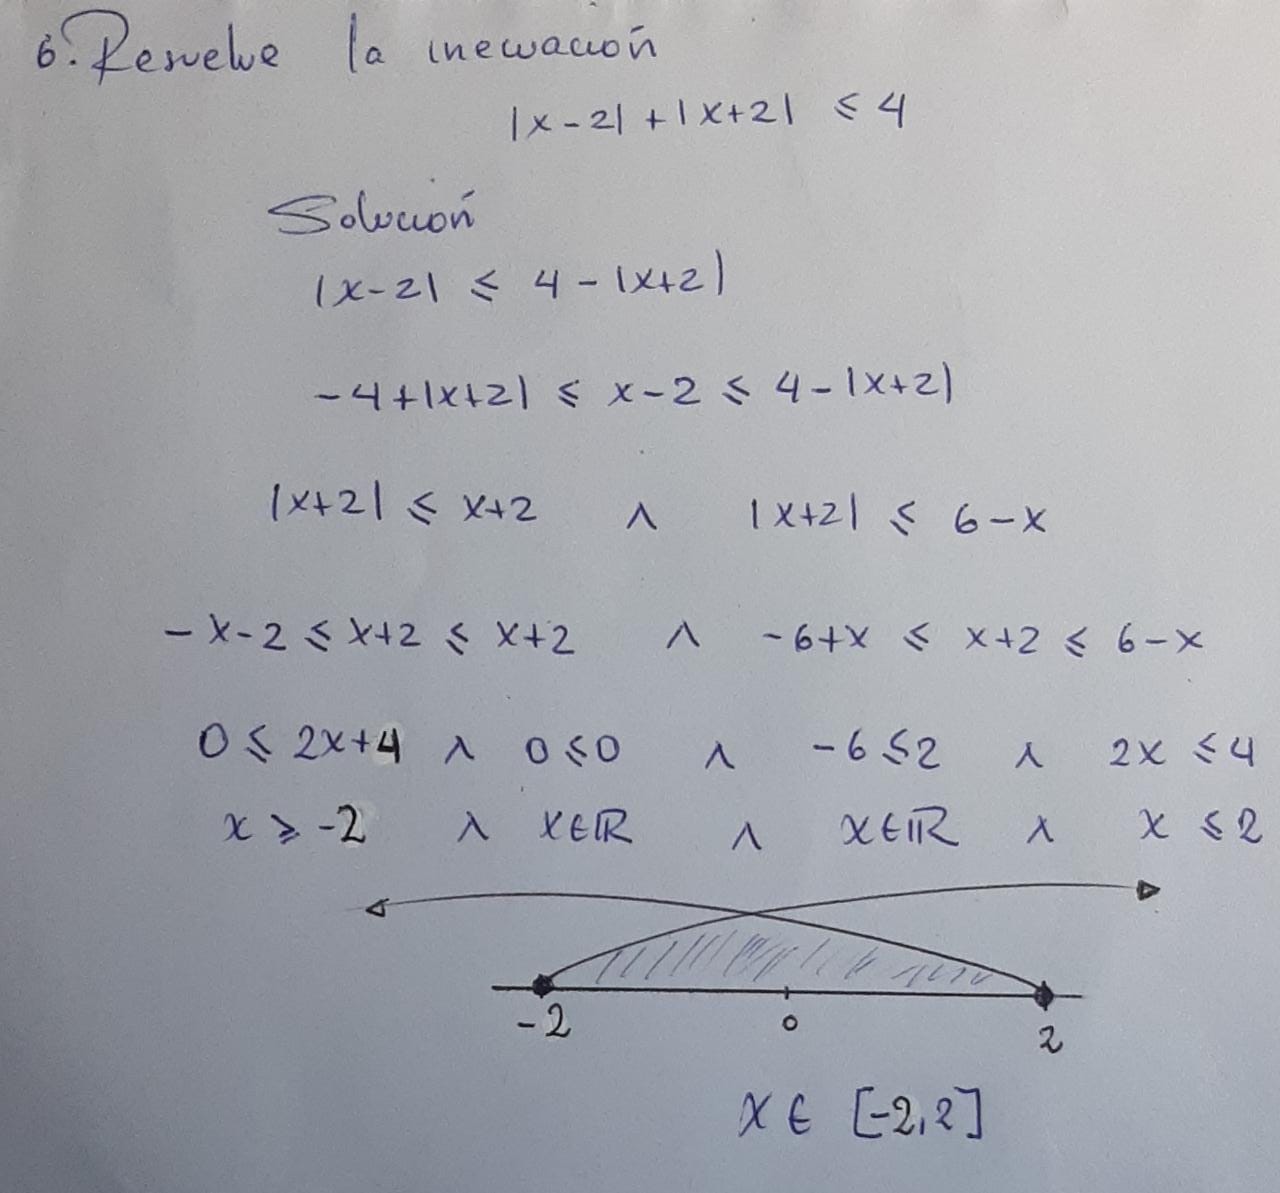 6. Resuelve la inecuación
|x-2| + |x+2| ≤ 4
Solución
|x-2| ≤ 4 - |x+2|
-4+|x+2| ≤ x-2 ≤ 4-|x+2|
|x+2| ≤ x+2 ∧ |x+2| ≤ 6-x
-x-2 ≤ x+2 ≤ x+2 ∧ -6+x ≤ x+2 ≤ 6-x
0 ≤ 2x+4 ∧ 0 ≤ 0 ∧ -6 ≤ 2 ∧ 2x ≤ 4
x ≥ -2 ∧ x∈ℝ ∧ x∈ℝ ∧ x ≤ 2
-2 0 2
x ∈ [-2,2]